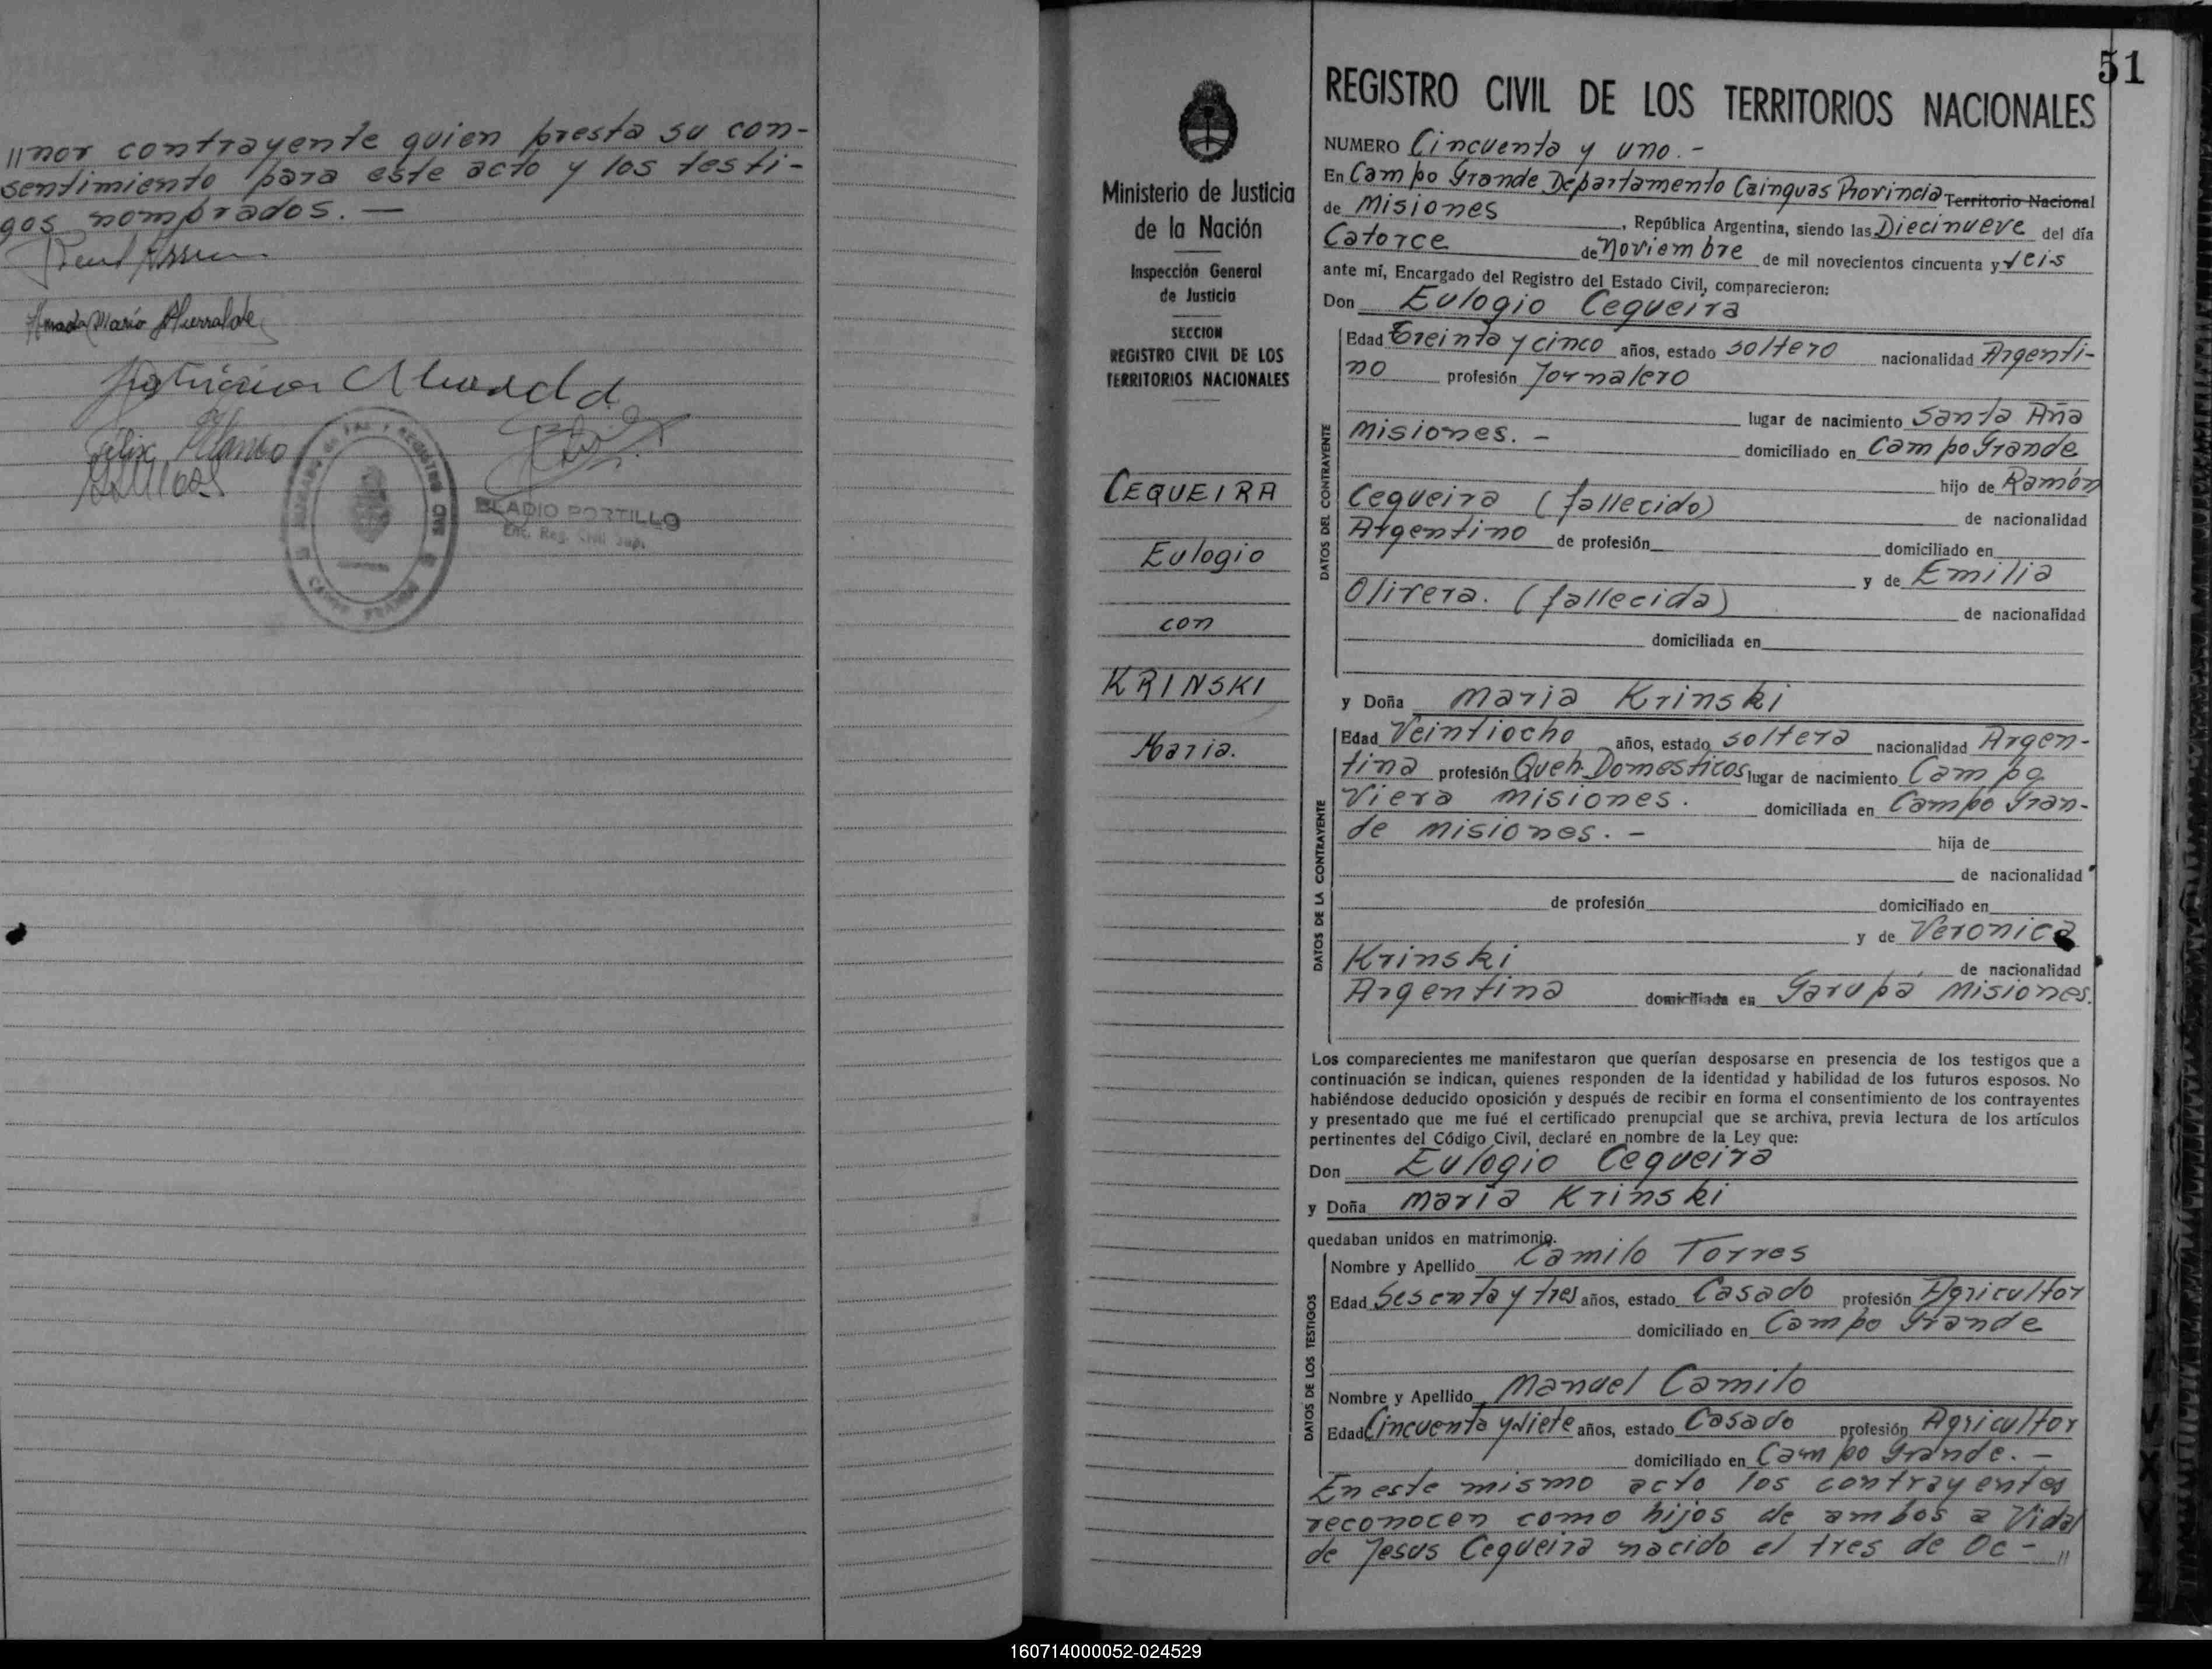 ||nor contrayente quien presta su con-
sentimiento para este acto y los testi-
gos nombrados. —
Félix
JUZGADO DE PAZ Y REGISTRO CIVIL
CAMPO GRANDE
ELADIO PORTILLO
Enc. Reg. Civil Sup.
Ministerio de Justicia
de la Nación
Inspección General
de Justicia
SECCION
REGISTRO CIVIL DE LOS
TERRITORIOS NACIONALES
CEQUEIRA
Eulogio
con
KRINSKI
Maria.
51
REGISTRO CIVIL DE LOS TERRITORIOS NACIONALES
NUMERO Cincuenta y uno.-
En Campo Grande Departamento Cainguas Provincia Territorio Nacional
de Misiones, República Argentina, siendo las Diecinueve del día
Catorce de Noviembre de mil novecientos cincuenta y seis
ante mí, Encargado del Registro del Estado Civil, comparecieron:
Don Eulogio Cequeira
DATOS DEL CONTRAYENTE
Edad Treinta y cinco años, estado soltero nacionalidad Argenti-
no profesión Jornalero
lugar de nacimiento Santa Aña
Misiones. -
domiciliado en Campo Grande
hijo de Ramón
Cequeira (fallecido) de nacionalidad
Argentino de profesión domiciliado en
y de Emilia
Olivera. (fallecida) de nacionalidad
domiciliada en
y Doña Maria Krinski
DATOS DE LA CONTRAYENTE
Edad Veintiocho años, estado soltera nacionalidad Argen-
tina profesión Queh. Domesticos lugar de nacimiento Campo
Viera Misiones. domiciliada en Campo Gran-
de Misiones. - hija de
de nacionalidad
de profesión domiciliado en
y de Veronica
Krinski de nacionalidad
Argentina domiciliada en Garupá Misiones.
Los comparecientes me manifestaron que querían desposarse en presencia de los testigos que a
continuación se indican, quienes responden de la identidad y habilidad de los futuros esposos. No
habiéndose deducido oposición y después de recibir en forma el consentimiento de los contrayentes
y presentado que me fué el certificado prenupcial que se archiva, previa lectura de los artículos
pertinentes del Código Civil, declaré en nombre de la Ley que:
Don Eulogio Cequeira
y Doña María Krinski
quedaban unidos en matrimonio.
DATOS DE LOS TESTIGOS
Nombre y Apellido Camilo Torres
Edad Sesenta y tres años, estado Casado profesión Agricultor
domiciliado en Campo Grande
Nombre y Apellido Manuel Camilo
Edad Cincuenta y siete años, estado Casado profesión Agricultor
domiciliado en Campo Grande. -
En este mismo acto los contrayentes
reconocen como hijos de ambos a Vidal
de Jesus Cequeira nacido el tres de Oc- ||
160714000052-024529